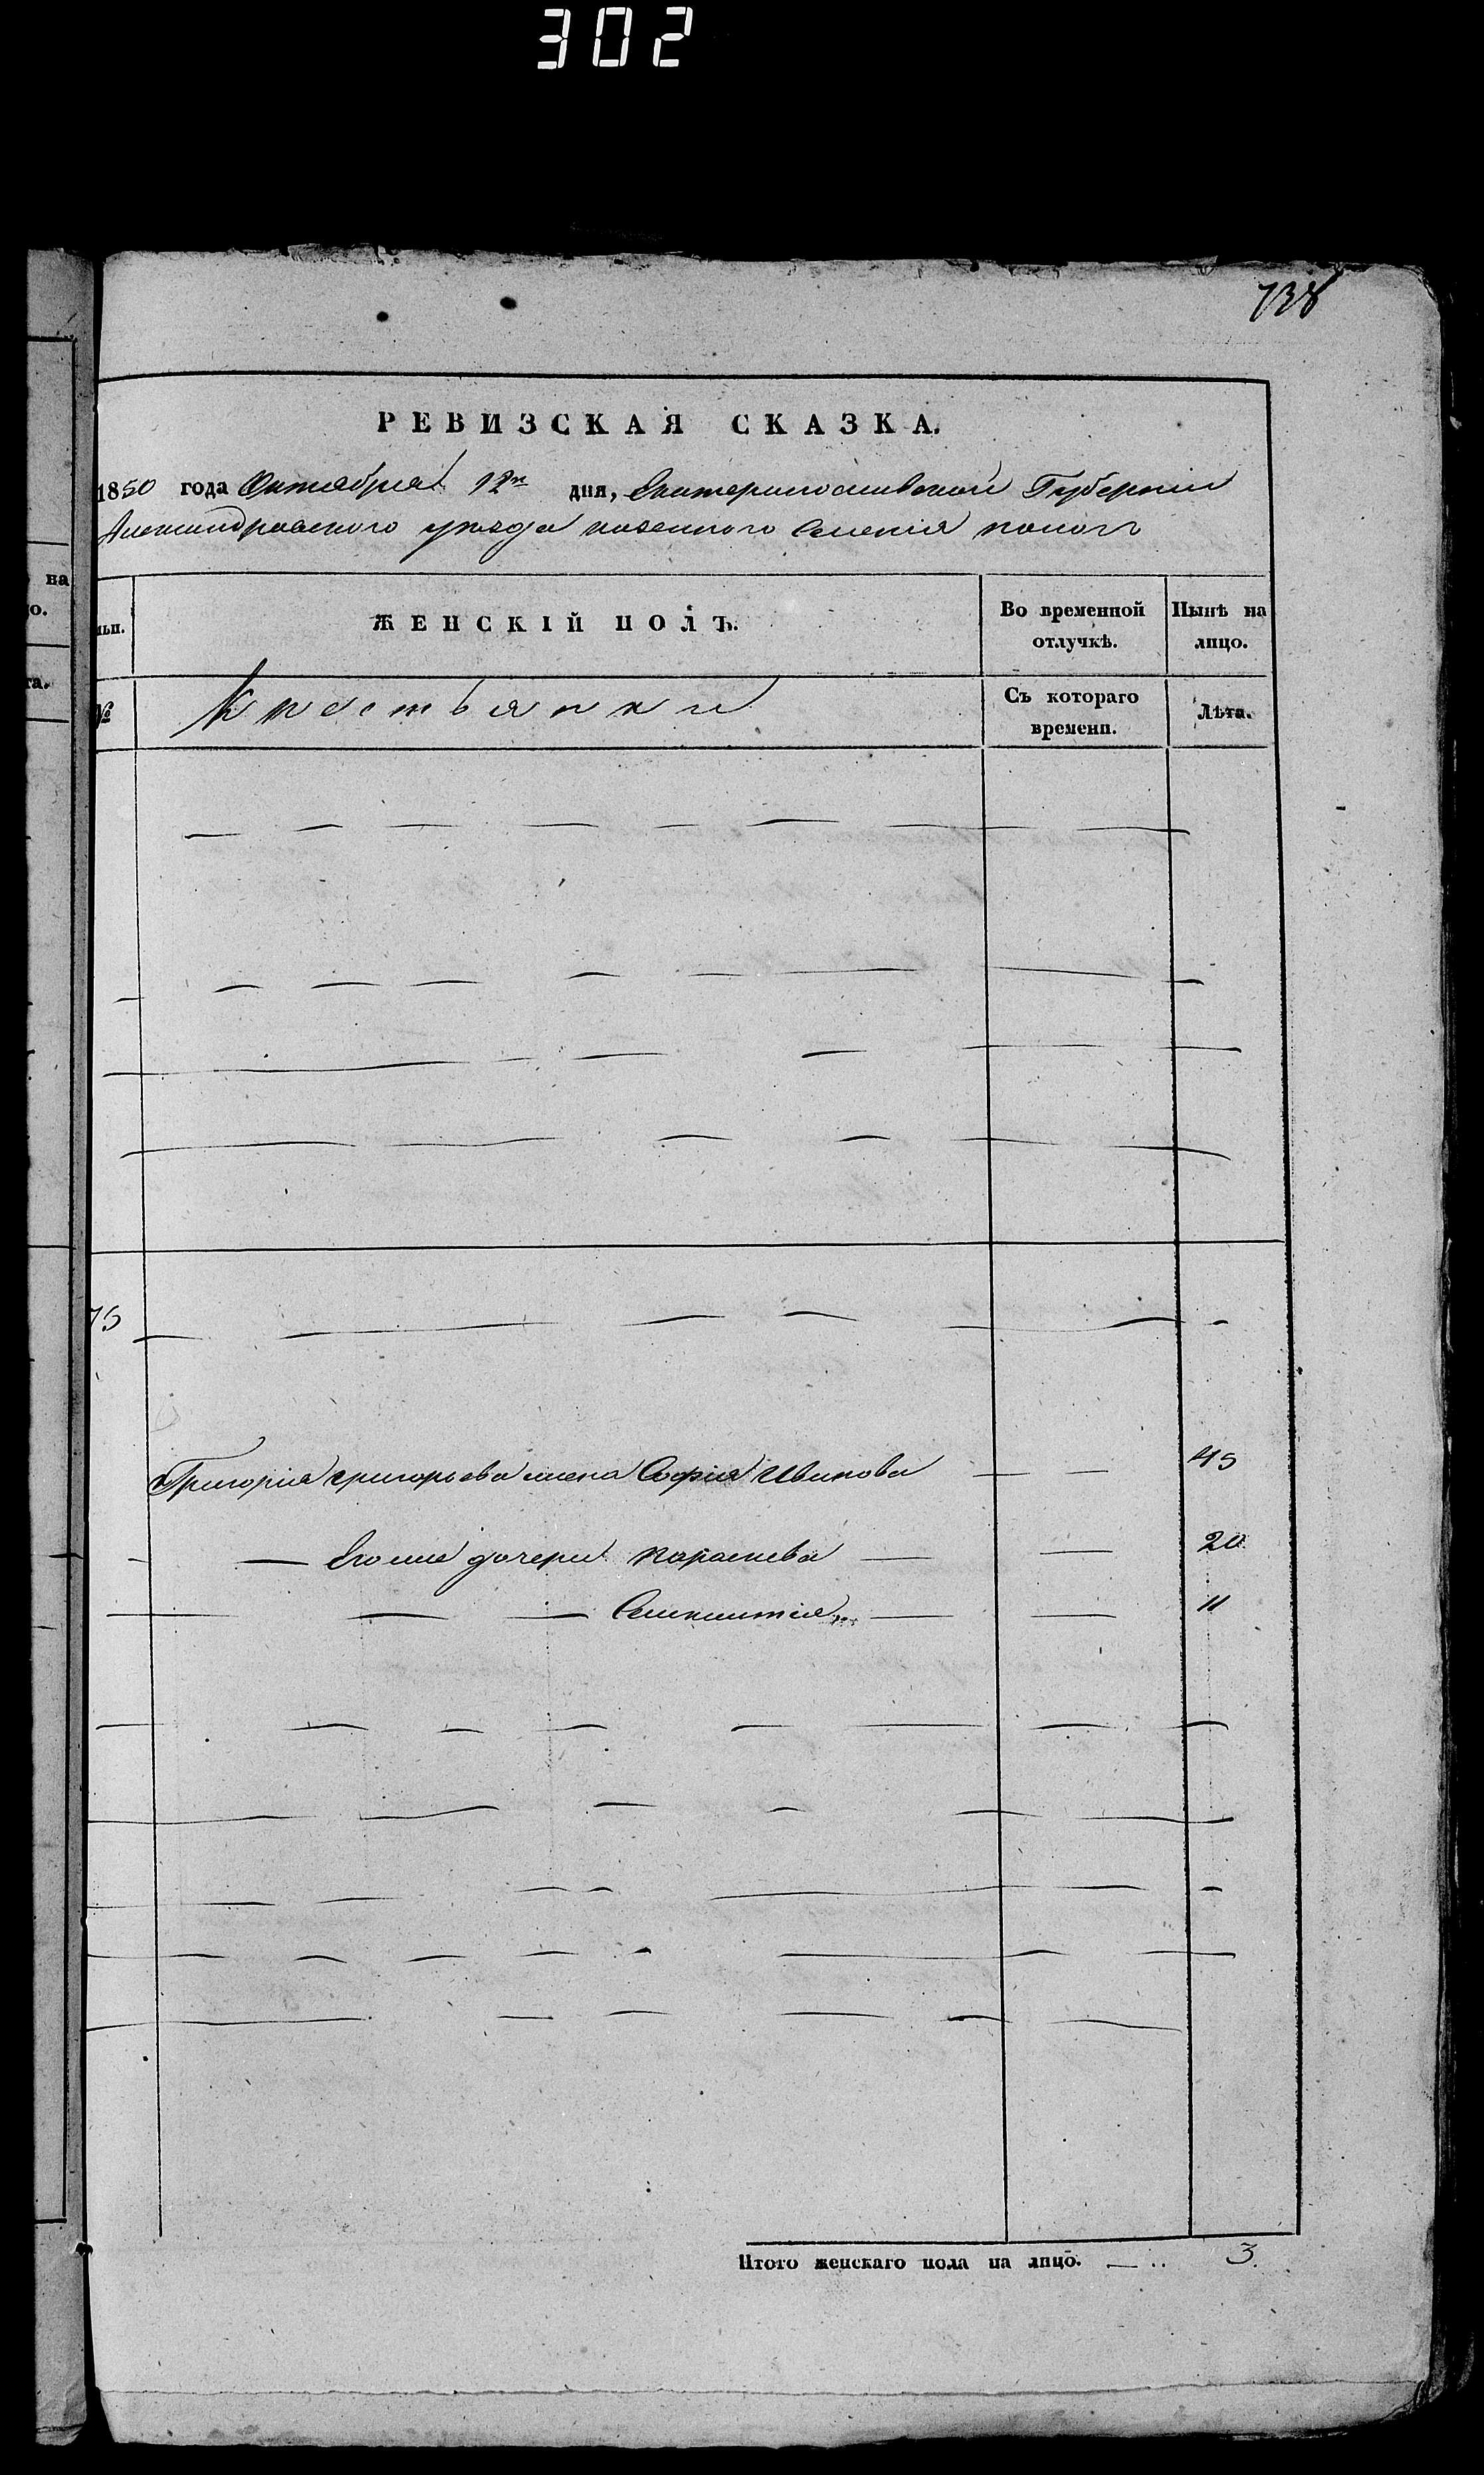 302
738
РЕВИЗСКАЯ СКАЗКА.
1850 года Октября 12го дня, Екатеринославской Губернии
Александровского уезда казенного селения
на
о.
льи.
ЖЕНСКІЙ ПОЛЪ.
Во временной отлучкѣ.
Нынѣ на лицо.
та.
№
Крестьянки
Съ котораго времени.
Лѣта.
75
Григория григорьева жена София Иванова 45
Его же дочери Параскева 20
11
Итого женскаго пола на лицо. 3.